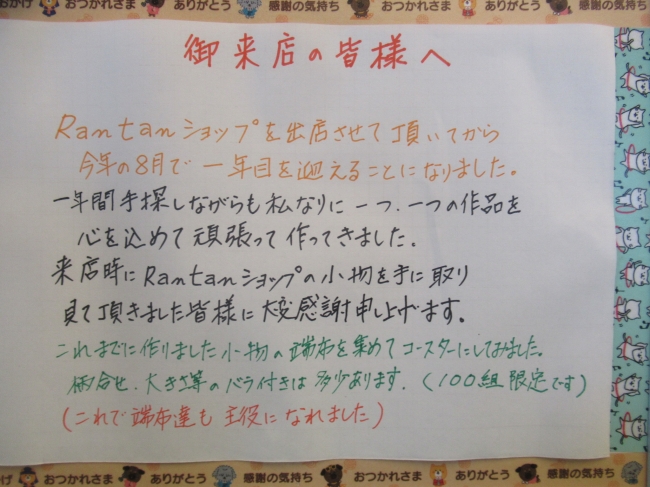 おかげ おつかれさま ありがとう 感謝の気持ち おつかれさま ありがとう 感謝の気持ち
御来店の皆様へ
Rantanショップを出店させて頂いてから
今年の8月で一年目を迎えることになりました。
一年間手探しながらも私なりに一つ、一つの作品を
心を込めて頑張って作ってきました。
来店時にRantanショップの小物を手に取り
見て頂きました皆様に大変感謝申し上げます。
これまでに作りました小物の端布を集めてコースターにしてみました。
柄合せ、大きさ等のバラ付きは多少あります。(100組限定です)
(これで端布達も主役になれました)
かげ おつかれさま ありがとう 感謝の気持ち おつかれさま ありがとう 感謝の気持ち